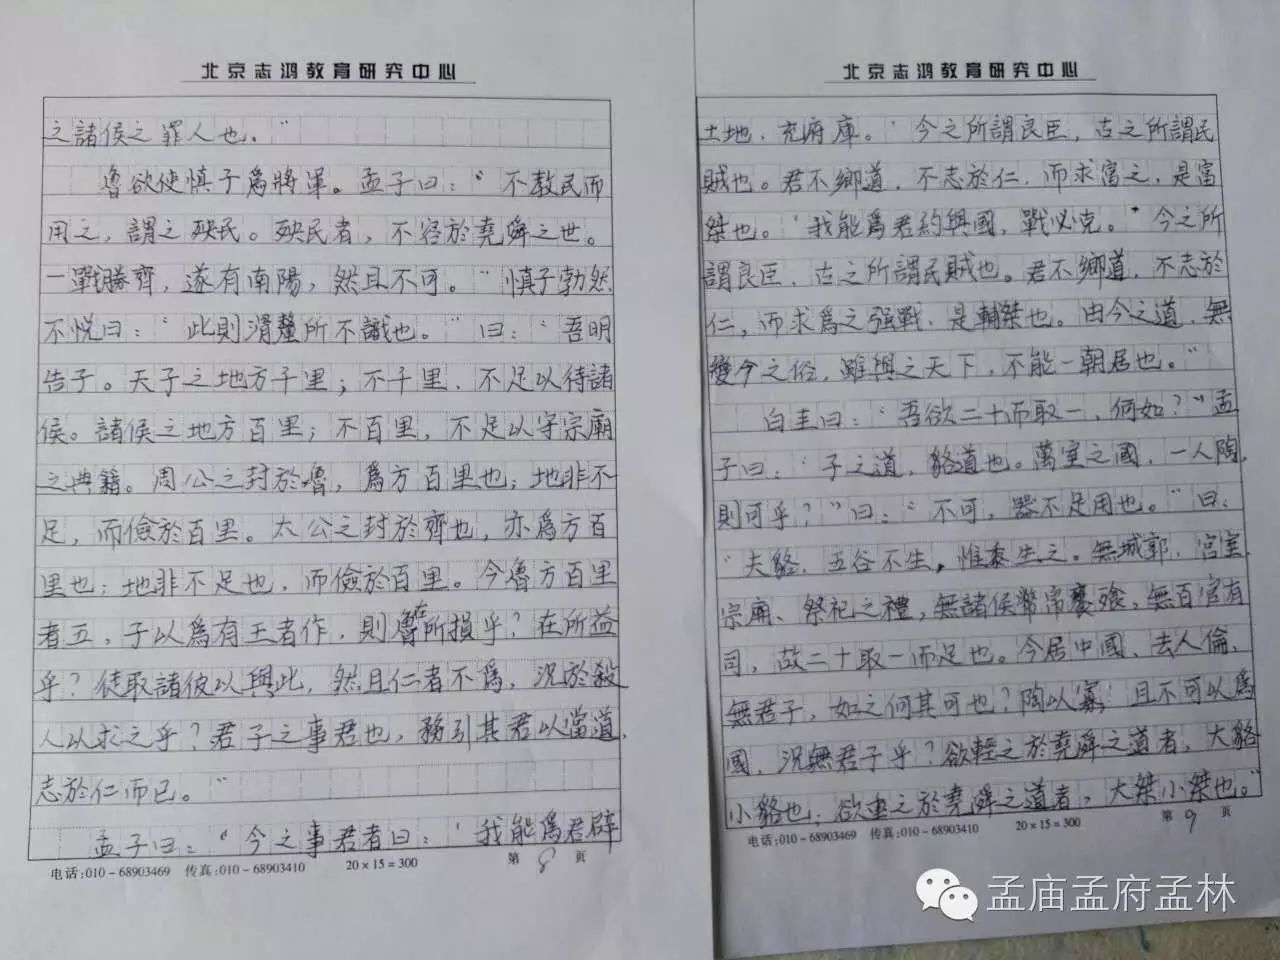 北京志鸿教育研究中心
之諸侯之罪人也。”
魯欲使慎子爲將軍。孟子曰：“不教民而
用之，謂之殃民。殃民者，不容於堯舜之世。
一戰勝齊，遂有南陽，然且不可。”慎子勃然
不悦曰：“此則滑釐所不識也。”曰：“吾明
告子。天子之地方千里；不千里，不足以待諸
侯。諸侯之地方百里；不百里，不足以守宗廟
之典籍。周公之封於魯，爲方百里也；地非不
足，而儉於百里。太公之封於齊也，亦爲方百
里也；地非不足也，而儉於百里。今魯方百里
者五，子以爲有王者作，則魯在所損乎？在所益
乎？徒取諸彼以與此，然且仁者不爲，況於殺
人以求之乎？君子之事君也，務引其君以當道，
志於仁而已。”
孟子曰：“今之事君者曰：‘我能爲君辟
电话:010－68903469 传真:010－68903410 20×15=300 第8页
北京志鸿教育研究中心
土地，充府庫。’今之所謂良臣，古之所謂民
賊也。君不鄉道，不志於仁，而求富之，是富
桀也。‘我能爲君約與國，戰必克。’今之所
謂良臣，古之所謂民賊也。君不鄉道，不志於
仁，而求爲之强戰，是輔桀也。由今之道，無
變今之俗，雖與之天下，不能一朝居也。”
白圭曰：“吾欲二十而取一，何如？”孟
子曰：“子之道，貉道也。萬室之國，一人陶，
則可乎？”曰：“不可，器不足用也。”曰：
“夫貉，五谷不生，惟黍生之。無城郭、宫室、
宗廟、祭祀之禮，無諸侯幣帛饔飧，無百官有
司，故二十取一而足也。今居中國，去人倫，
無君子，如之何其可也？陶以寡，且不可以爲
國，況無君子乎？欲輕之於堯舜之道者，大貉
小貉也；欲重之於堯舜之道者，大桀小桀也。”
电话:010－68903469 传真:010－68903410 20×15=300 第9页
孟庙孟府孟林